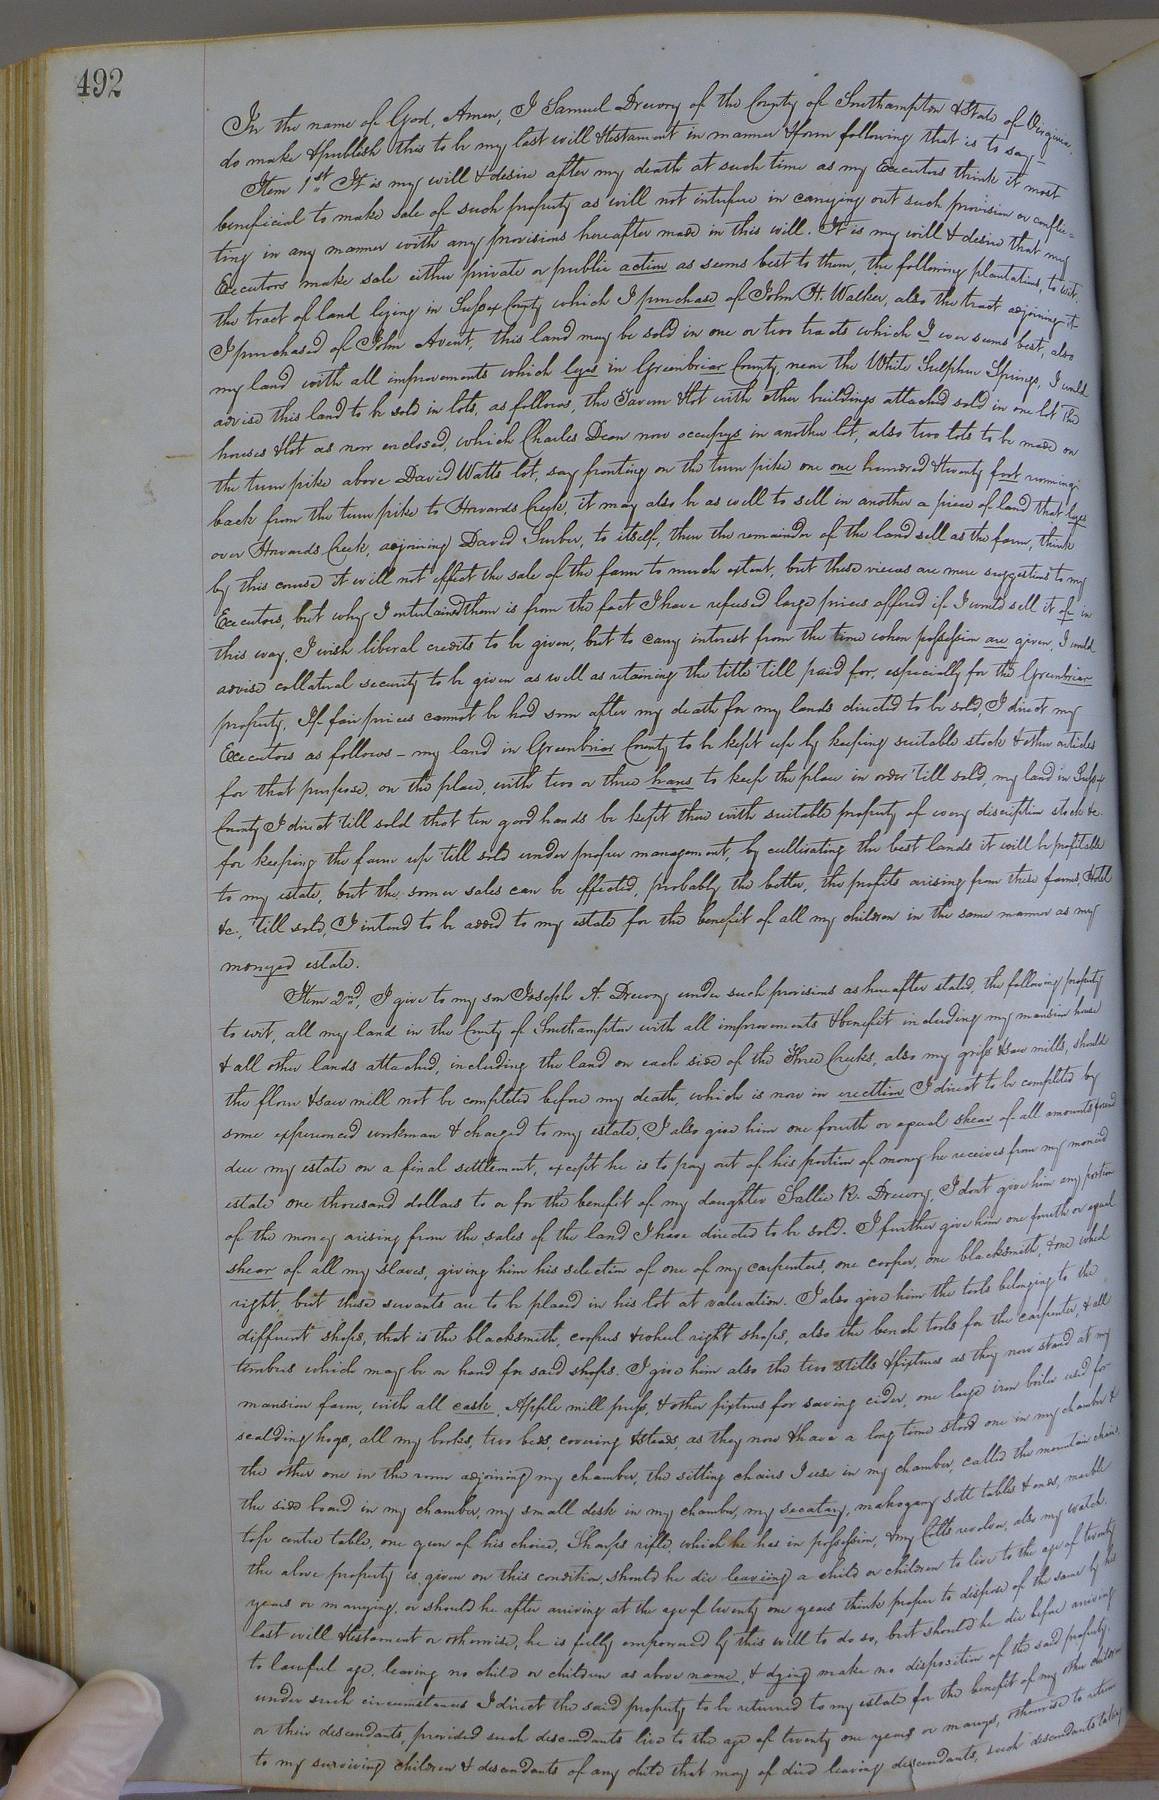 492
In the name of God, Amen, I Samuel Drewry of the County of Southampton & State of Virginia,
do make & publish this to be my last will & testament in manner & form following that is to say—
Item 1st It is my will & desire after my death at such time as my Executors think it most
beneficial to make sale of such property as will not interfere in carrying out such provision or conflic=
ting in any manner with any provisions hereafter made in this will. It is my will & desire that my
Executors make sale either private or public action as seems best to them, the following plantations, to wit,
the tract of land lying in Sussex County which I purchase of John H. Walker, also the tract adjoining it
I purchased of John Avent, this land may be sold in one or two tracts which I ever seems best, also
my land with all improvements which lyes in Greenbriar County, near the White Sulphur Springs, I would
advise this land to be sold in lots, as follows, the Tavern & lot with other buildings attached sold in one lot The
houses & lot as now enclosed, which Charles Dean now occupys in another lot, also two lots to be made on
the turnpike above David Watts lot, say fronting on the turn pike one one hundred & twenty foot running
back from the turn pike to Howards Creek, it may also be as well to sell in another a piece of land that lyes
over Howards Creek, adjoining David Surber, to itself, then the remainder of the land sell as the farm, think
by this course it will not effect the sale of the farm to much extent, but these views are mere suggestions to my
Executors, but why I entertained them is from the fact I have refused large prices offered if I would sell it of in
this way, I wish liberal credits to be given, but to carry interest from the time when possession are given, I would
advise collateral security to be given as well as retaining the title till paid for, especially for the Greenbriar
property, If fair prices cannot be had soon after my death for my lands directed to be sold, I direct my
Executors as follows — my land in Greenbrior County to be kept up by keeping suitable stock & other articles
for that purpose, on the place, with two or three hans to keep the place in order till sold, my land in Sussex
County I direct till sold that ten good hands be kept there with suitable property of every discription stock &c.
for keeping the farm up till sold under proper management, by cultivating the best lands it will be profitable
to my estate, but the sooner sales can be effected, probably the better, the profits arising from these farms, Hotel
&c., till sold, I intend to be added to my estate for the benefit of all my children in the same manner as my
monyed estate.
Item 2nd, I give to my son Joseph A. Drewry under such provisions as hereafter stated, the following property
to wit, all my land in the County of Southampton with all improvements & benefit including my mansion house
& all other lands attached, including the land on each side of the Three Creeks, also my griss & saw mills, should
the flour & saw mill not be completed before my death, which is now in erecttion I direct to be completed by
some experienced workman & charged to my estate, I also give him one fourth or equal shear of all amounts found
due my estate on a final settlement, except he is to pay out of his portion of money he receives from my monied
estate one thousand dollars to or for the benefit of my daughter Sallie R. Drewry, I dont give him any portion
of the money arising from the sales of the land I have directed to be sold. I further give him one fourth or equal
shear of all my slaves, giving him his selection of one of my carpenters, one cooper, one blacksmith, & one wheel
right, but these servants are to be placed in his lot at valuation. I also give him the tools belonging to the
different shops, that is the blacksmith, coopers & wheel right shops, also the bench tools for the carpenter, & all
timbers which may be on hand for said shops. I give him also the two stills & fixtures as they now stand at my
mansion farm, with all cask, Apple mill press, & other fixtures for saving cider, one large iron boiler used for
scalding hogs, all my books, two beds, covering & steads, as they now & have a long time stood one in my chamber &
the other one in the room adjoining my chamber, the sitting chairs I use in my chamber, called the mountain chairs,
the side board in my chamber, my small desk in my chamber, my secatary, mahogany sett tables & ends, marble
top centre table, one gun of his choice, Sharps rifle, which he has in possession, & my Colts revolver, also my watch.
the above property is given on this condition, should he die leaveing a child or children to live to the age of twenty
years or marrying, or should he after arriving at the age of twenty one years think proper to dispose of the same by his
last will & testament or otherwise, he is fully empowered by this will to do so, but should he die before arriving
to lawful age, leaving no child or children as above name, & dying make no disposition of the said property,
under such circumstances I direct the said property to be returned to my estate for the benefit of my other children
or their descendants, provided such descendants live to the age of twenty one years or marrys, otherwise to return
to my surviving children & descendants of any child that may of died leaving descendants, such descendants taking